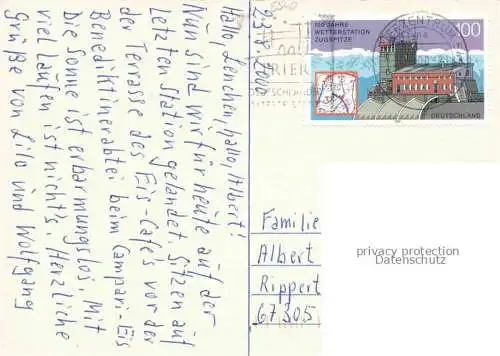 23.8.2000
Hallo, Lenchen, hallo, Albert!
Nun sind wir für heute auf der
Letzten Station gelandet. Sitzen auf
der Terrasse des Eis-Cafe's vor der
Benediktinerabtei beim Campari-Eis
Die Sonne ist erbarmungslos. Mit
viel Laufen ist nicht's. Herzliche
Grüße von Lilo und Wolfgang
100 JAHRE
WETTERSTATION
ZUGSPITZE
100
DEUTSCHLAND
Familie
Albert
Rippert
67305
privacy protection
Datenschutz